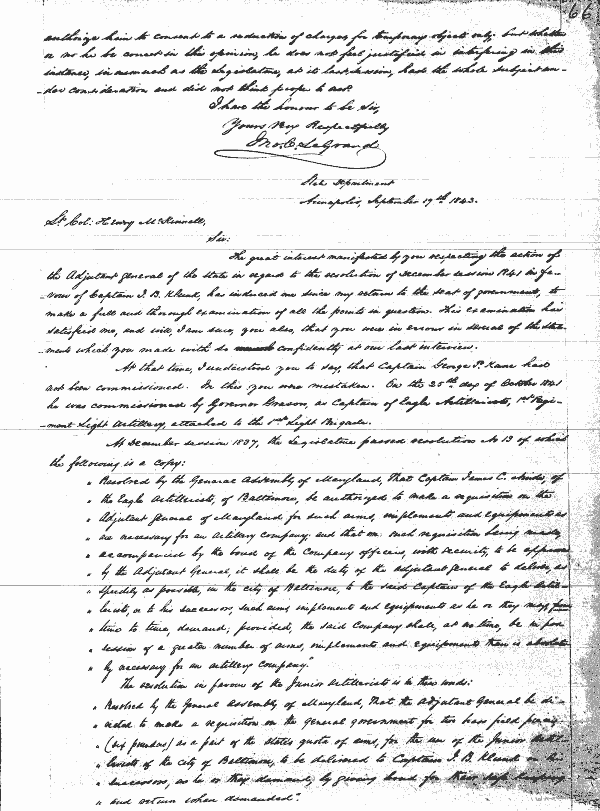 66
authorize him to consent to a reduction of charges for temporary objects only: but whether
or no he be correct in this opinion, he does not feel justified in interfering in this
instance, in as much as the Legislature, at its last session, had the whole subject un-
-der consideration and did not think proper to act.
I have the honour to be Sir,
Yours Very Respectfully
Jno. C. LeGrand
State Department
Annapolis, September 19th 1843.
Lt Col: Henry McKinnell,
Sir:
The great interest manifested by you respecting the action of
the Adjutant General of the state in regard to the resolution of December session 1841 in fa-
-vour of Captain J. B. Klunk, has induced me since my return to the seat of government, to
make a full and thorough examination of all the points in question. This examination has
satisfied me, and will, I am sure, you also, that you were in errour in several of the state-
-ments which you made with so confidently at our last interview.
At that time, I understood you to say, that Captain George P. Kane had
not been commissioned. In this you were mistaken. On the 25th day of October 1841
he was commissioned by Governor Grason, as Captain of Eagle Artillerists, 1st Regi-
-ment Light Artillery, attached to the 1st Light Brigade.
At December session 1837, the Legislature passed resolution No 13 of which
the following is a copy:
" Resolved by the General Assembly of Maryland, That Captain James C. of
" the Eagle Artillerists, of Baltimore, be authorized to make a requisition on the
" Adjutant General of Maryland for such arms, implements and equipments as
" are necessary for an Artillery Company, and that on such requisition being made,
" accompanied by the bond of the Company officers, with security, to be approved
" by the Adjutant General, it shall be the duty of the Adjutant General to deliver, as
" speedily as possible, in the city of Baltimore, to the said Captain of the Eagle Artil-
" lerists, or to his successor, such arms implements and equipments as he or they may, from
" time to time, demand; provided, the said Company shall, at no time, be in pos-
" session of a greater number of arms, implements and equipments than is absolute-
" ly necessary for an artillery company."
The resolution in favour of the Junior Artillerists is in these words:
" Resolved by the General Assembly of Maryland, That the Adjutant General be di-
" rected to make a requisition on the General government for two brass field pieces,
" (six pounders) as a part of the states quota of arms, for the use of the Junior Artil-
" lerists of the city of Baltimore, to be delivered to Captain J. B. Klunk or his
" successors, as he or they demand, by giving bond for their safe keeping
" and return when demanded."